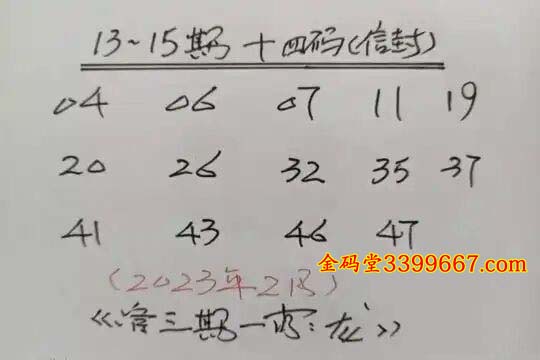 13~15期 十四码(信封)
04 06 07 11 19
20 26 32 35 37
41 43 46 47
金码堂3399667.com
(2023年2月)
《 三期一肖:龙》